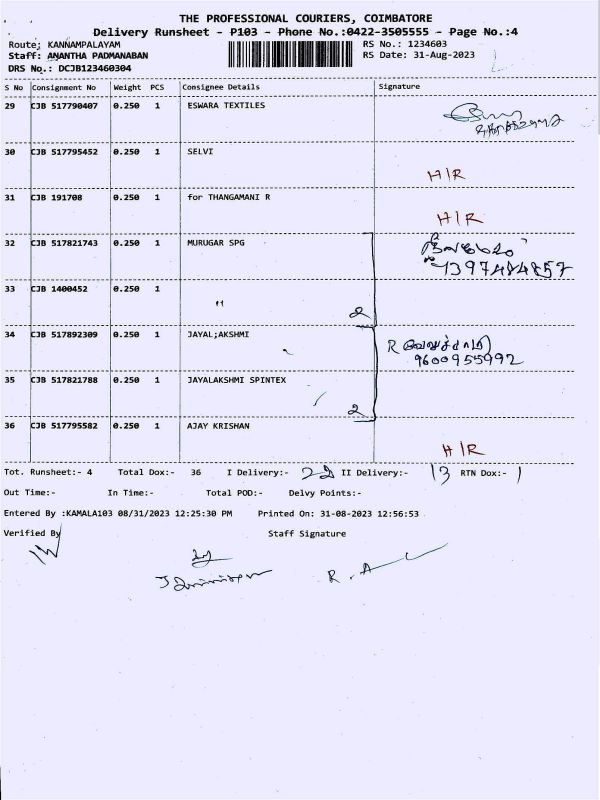 THE PROFESSIONAL COURIERS, COIMBATORE
Delivery Runsheet - P103 - Phone No.:0422-3505555 - Page No.:4
Route; KANNAMPALAYAM RS No.: 1234603
Staff: ANANTHA PADMANABAN RS Date: 31-Aug-2023
DRS No.: DCJB123460304
S No Consignment No Weight PCS Consignee Details Signature
29 CJB 517790407 0.250 1 ESWARA TEXTILES
30 CJB 517795452 0.250 1 SELVI
H/R
31 CJB 191708 0.250 1 for THANGAMANI R
H/R
32 CJB 517821743 0.250 1 MURUGAR SPG
33 CJB 1400452 0.250 1
"
2
34 CJB 517892309 0.250 1 JAYAL;AKSHMI R
9600955992
35 CJB 517821788 0.250 1 JAYALAKSHMI SPINTEX
2
36 CJB 517795582 0.250 1 AJAY KRISHAN
H/R
Tot. Runsheet:- 4 Total Dox:- 36 I Delivery:- 22 II Delivery:- 13 RTN Dox:- 1
Out Time:- In Time:- Total POD:- Delvy Points:-
Entered By :KAMALA103 08/31/2023 12:25:30 PM Printed On: 31-08-2023 12:56:53
Verified By Staff Signature
R. A